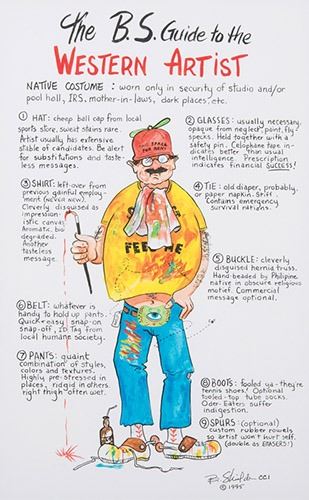 the B.S. Guide to the
WESTERN ARTIST
NATIVE COSTUME: worn only in security of studio and/or
pool hall, IRS, mother-in-laws, dark places, etc.
① HAT: cheap ball cap from local
sports store, sweat stains rare.
Artist usually has extensive
stable of candidates. Be alert
for substitutions and taste-
less messages.
② GLASSES: usually necessary,
opaque from neglect, paint, fly-
specks. Held together with a
safety pin. Cellophane tape in-
dicates better than usual
intelligence. Prescription
indicates financial SUCCESS!
③ SHIRT: left-over from
previous gainful employ-
ment (NEVER NEW).
Cleverly disguised as
impression-
istic canvas
Aromatic, bio
degraded.
Another
tasteless
message.
④ TIE: old diaper, probably,
or paper napkin. Stiff.
Contains emergency
survival rations.
⑤ BUCKLE: cleverly
disguised hernia truss.
Hand-beaded by Philipine
native in obscure religious
motif. Commercial
message optional.
⑥ BELT: whatever is
handy to hold up pants.
Quick-easy snap-on
snap-off, ID Tag from
local humane society.
⑦ PANTS: quaint
combination of styles,
colors and textures.
Highly pre-stressed in
places, ridgid in others.
right thigh often wet.
⑧ BOOTS: fooled ya - they're
tennis shoes! Optional
tooled-top tube socks.
Odor-Eaters suffer
indigestion.
⑨ SPURS: (optional)
custom rubber rowels
so artist won't hurt self.
(double as ERASERS!)
FEED ME
© 1995